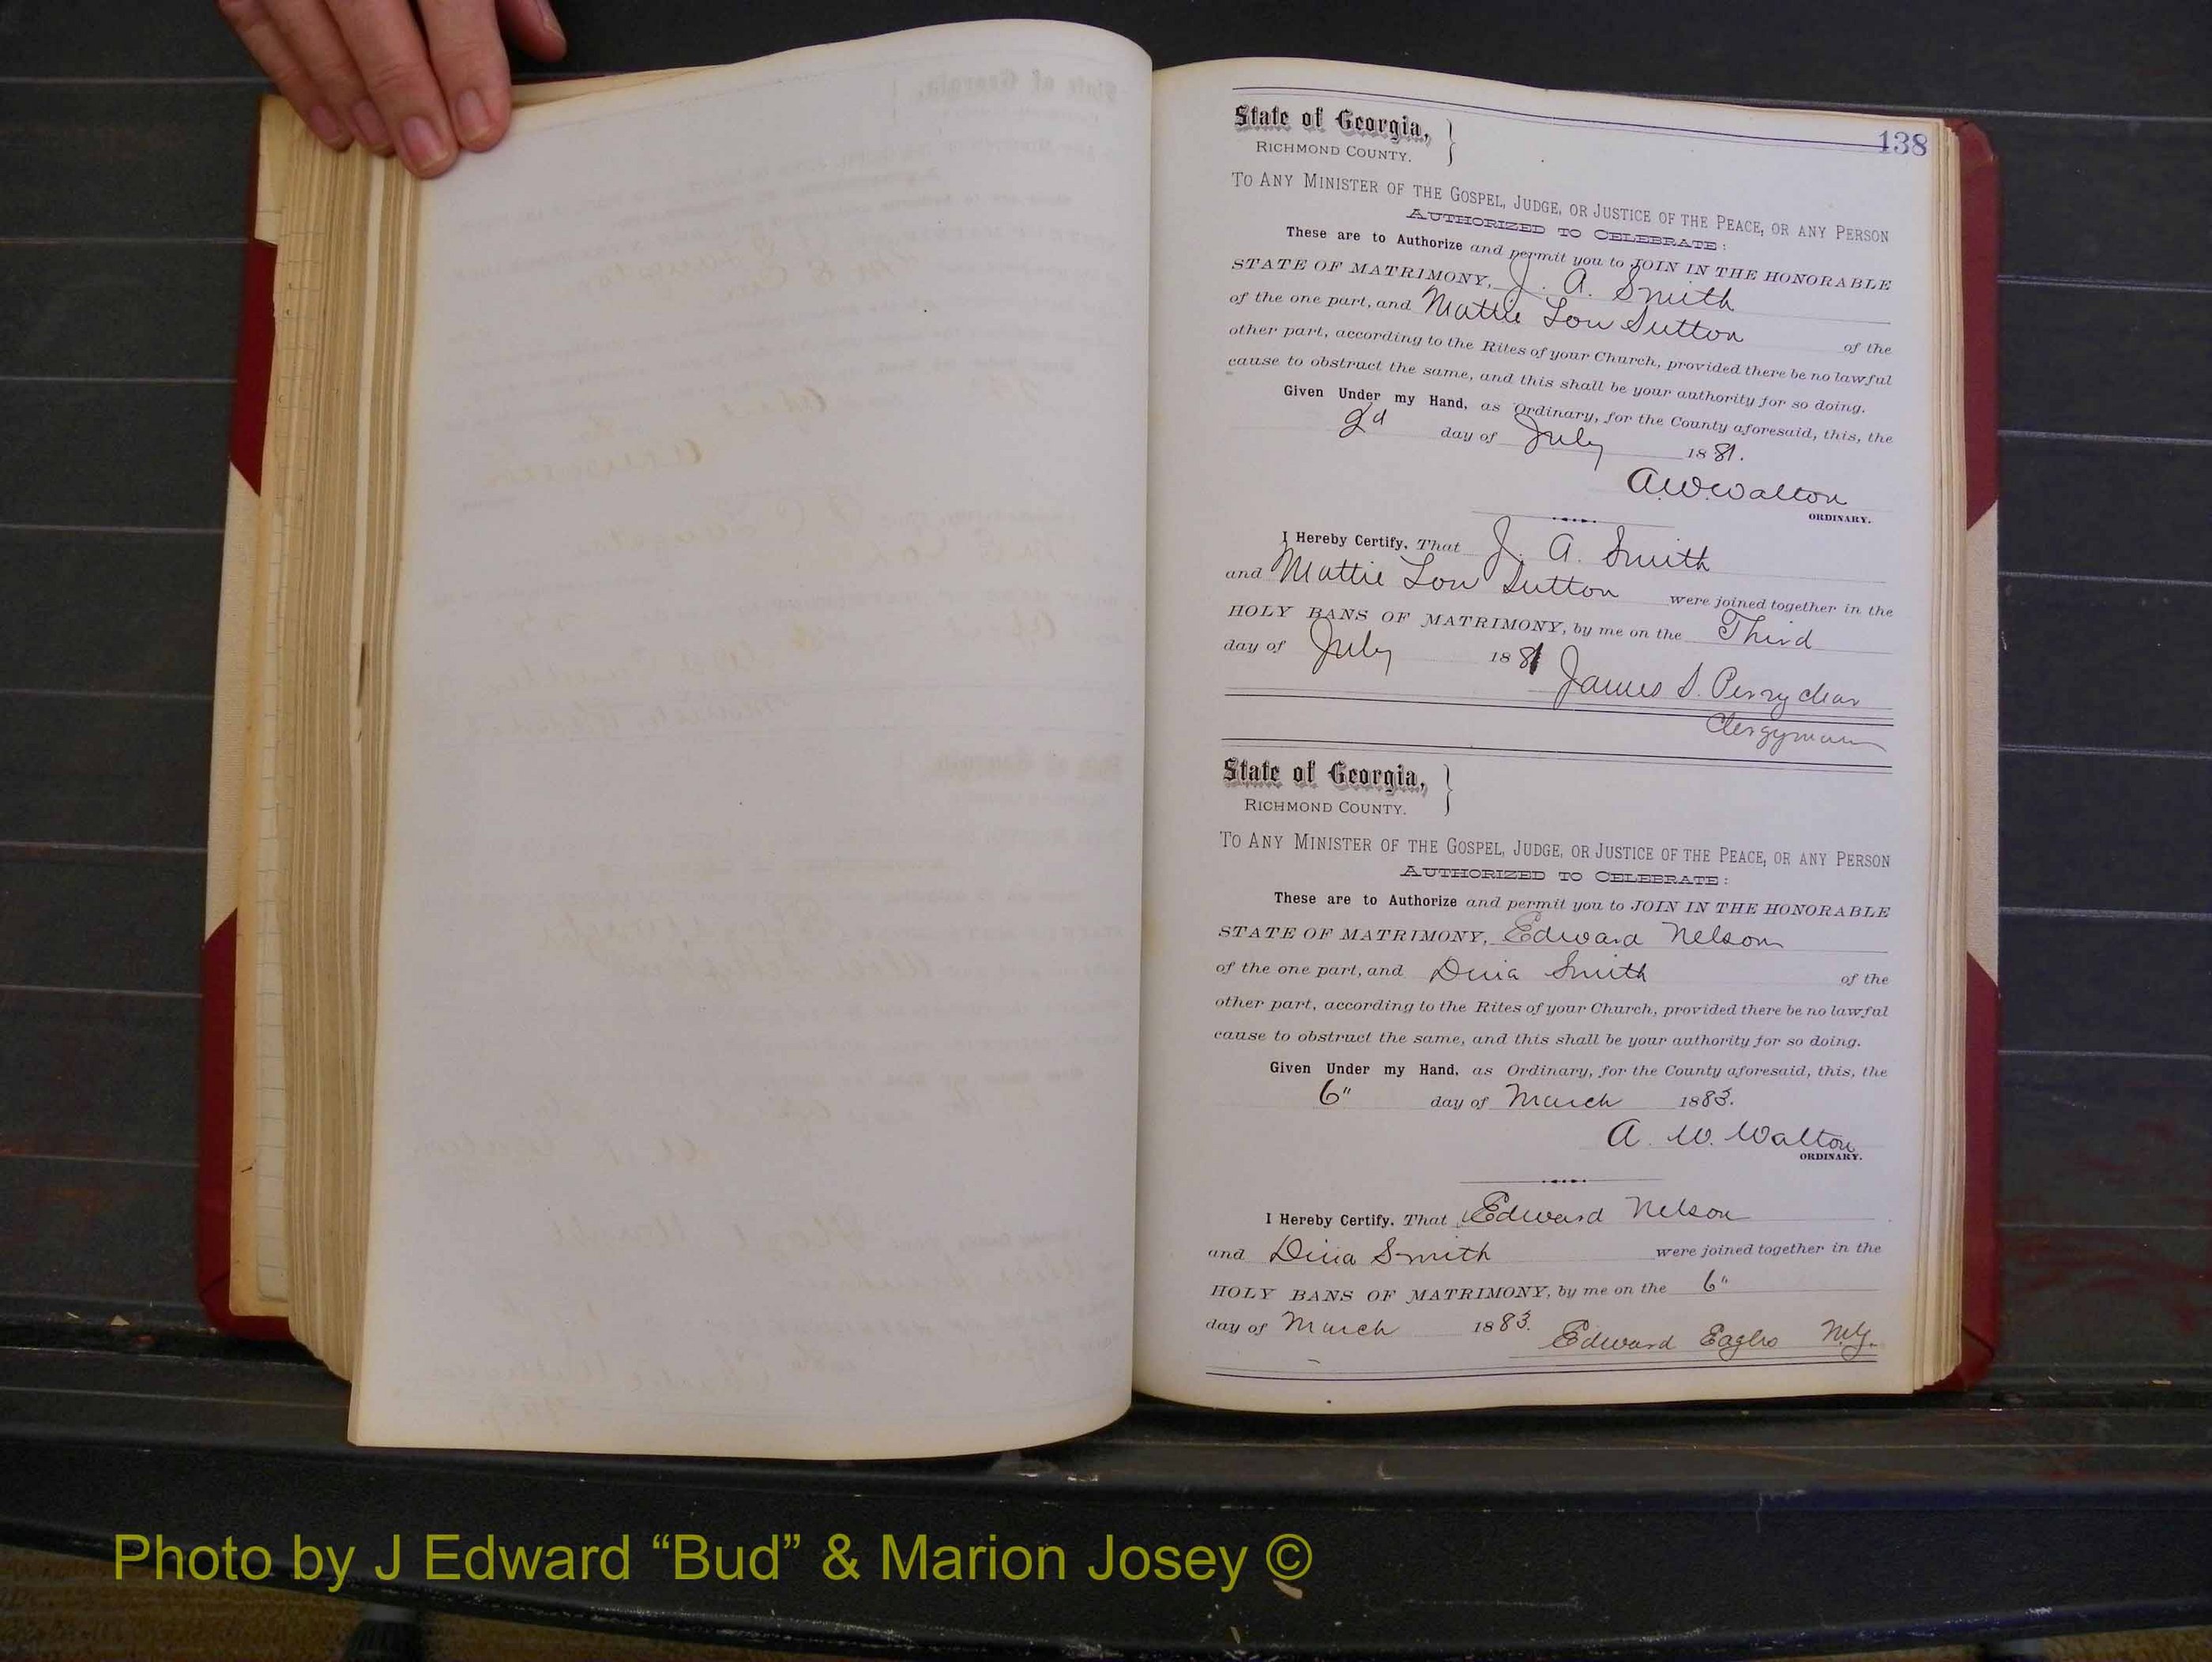 138
State of Georgia,
RICHMOND COUNTY.
TO ANY MINISTER OF THE GOSPEL, JUDGE, OR JUSTICE OF THE PEACE, OR ANY PERSON
AUTHORIZED TO CELEBRATE:
These are to Authorize and permit you to JOIN IN THE HONORABLE
STATE OF MATRIMONY, J. A. Smith
of the one part, and Mattie Lou Sutton of the
other part, according to the Rites of your Church, provided there be no lawful
cause to obstruct the same, and this shall be your authority for so doing.
Given Under my Hand, as Ordinary, for the County aforesaid, this, the
2d day of July 1881.
A.W. Walton
ORDINARY.
I Hereby Certify, That J. A. Smith
and Mattie Lou Sutton were joined together in the
HOLY BANS OF MATRIMONY, by me on the Third
day of July 1881 James S. Perry
Clergyman
State of Georgia,
RICHMOND COUNTY.
TO ANY MINISTER OF THE GOSPEL, JUDGE, OR JUSTICE OF THE PEACE, OR ANY PERSON
AUTHORIZED TO CELEBRATE:
These are to Authorize and permit you to JOIN IN THE HONORABLE
STATE OF MATRIMONY, Edward Nelson
of the one part, and Dina Smith of the
other part, according to the Rites of your Church, provided there be no lawful
cause to obstruct the same, and this shall be your authority for so doing.
Given Under my Hand, as Ordinary, for the County aforesaid, this, the
6" day of March 1883.
A. W. Walton
ORDINARY.
I Hereby Certify. That Edward Nelson
and Dina Smith were joined together in the
HOLY BANS OF MATRIMONY, by me on the 6"
day of March 1883. Edward
Photo by J Edward “Bud” & Marion Josey ©